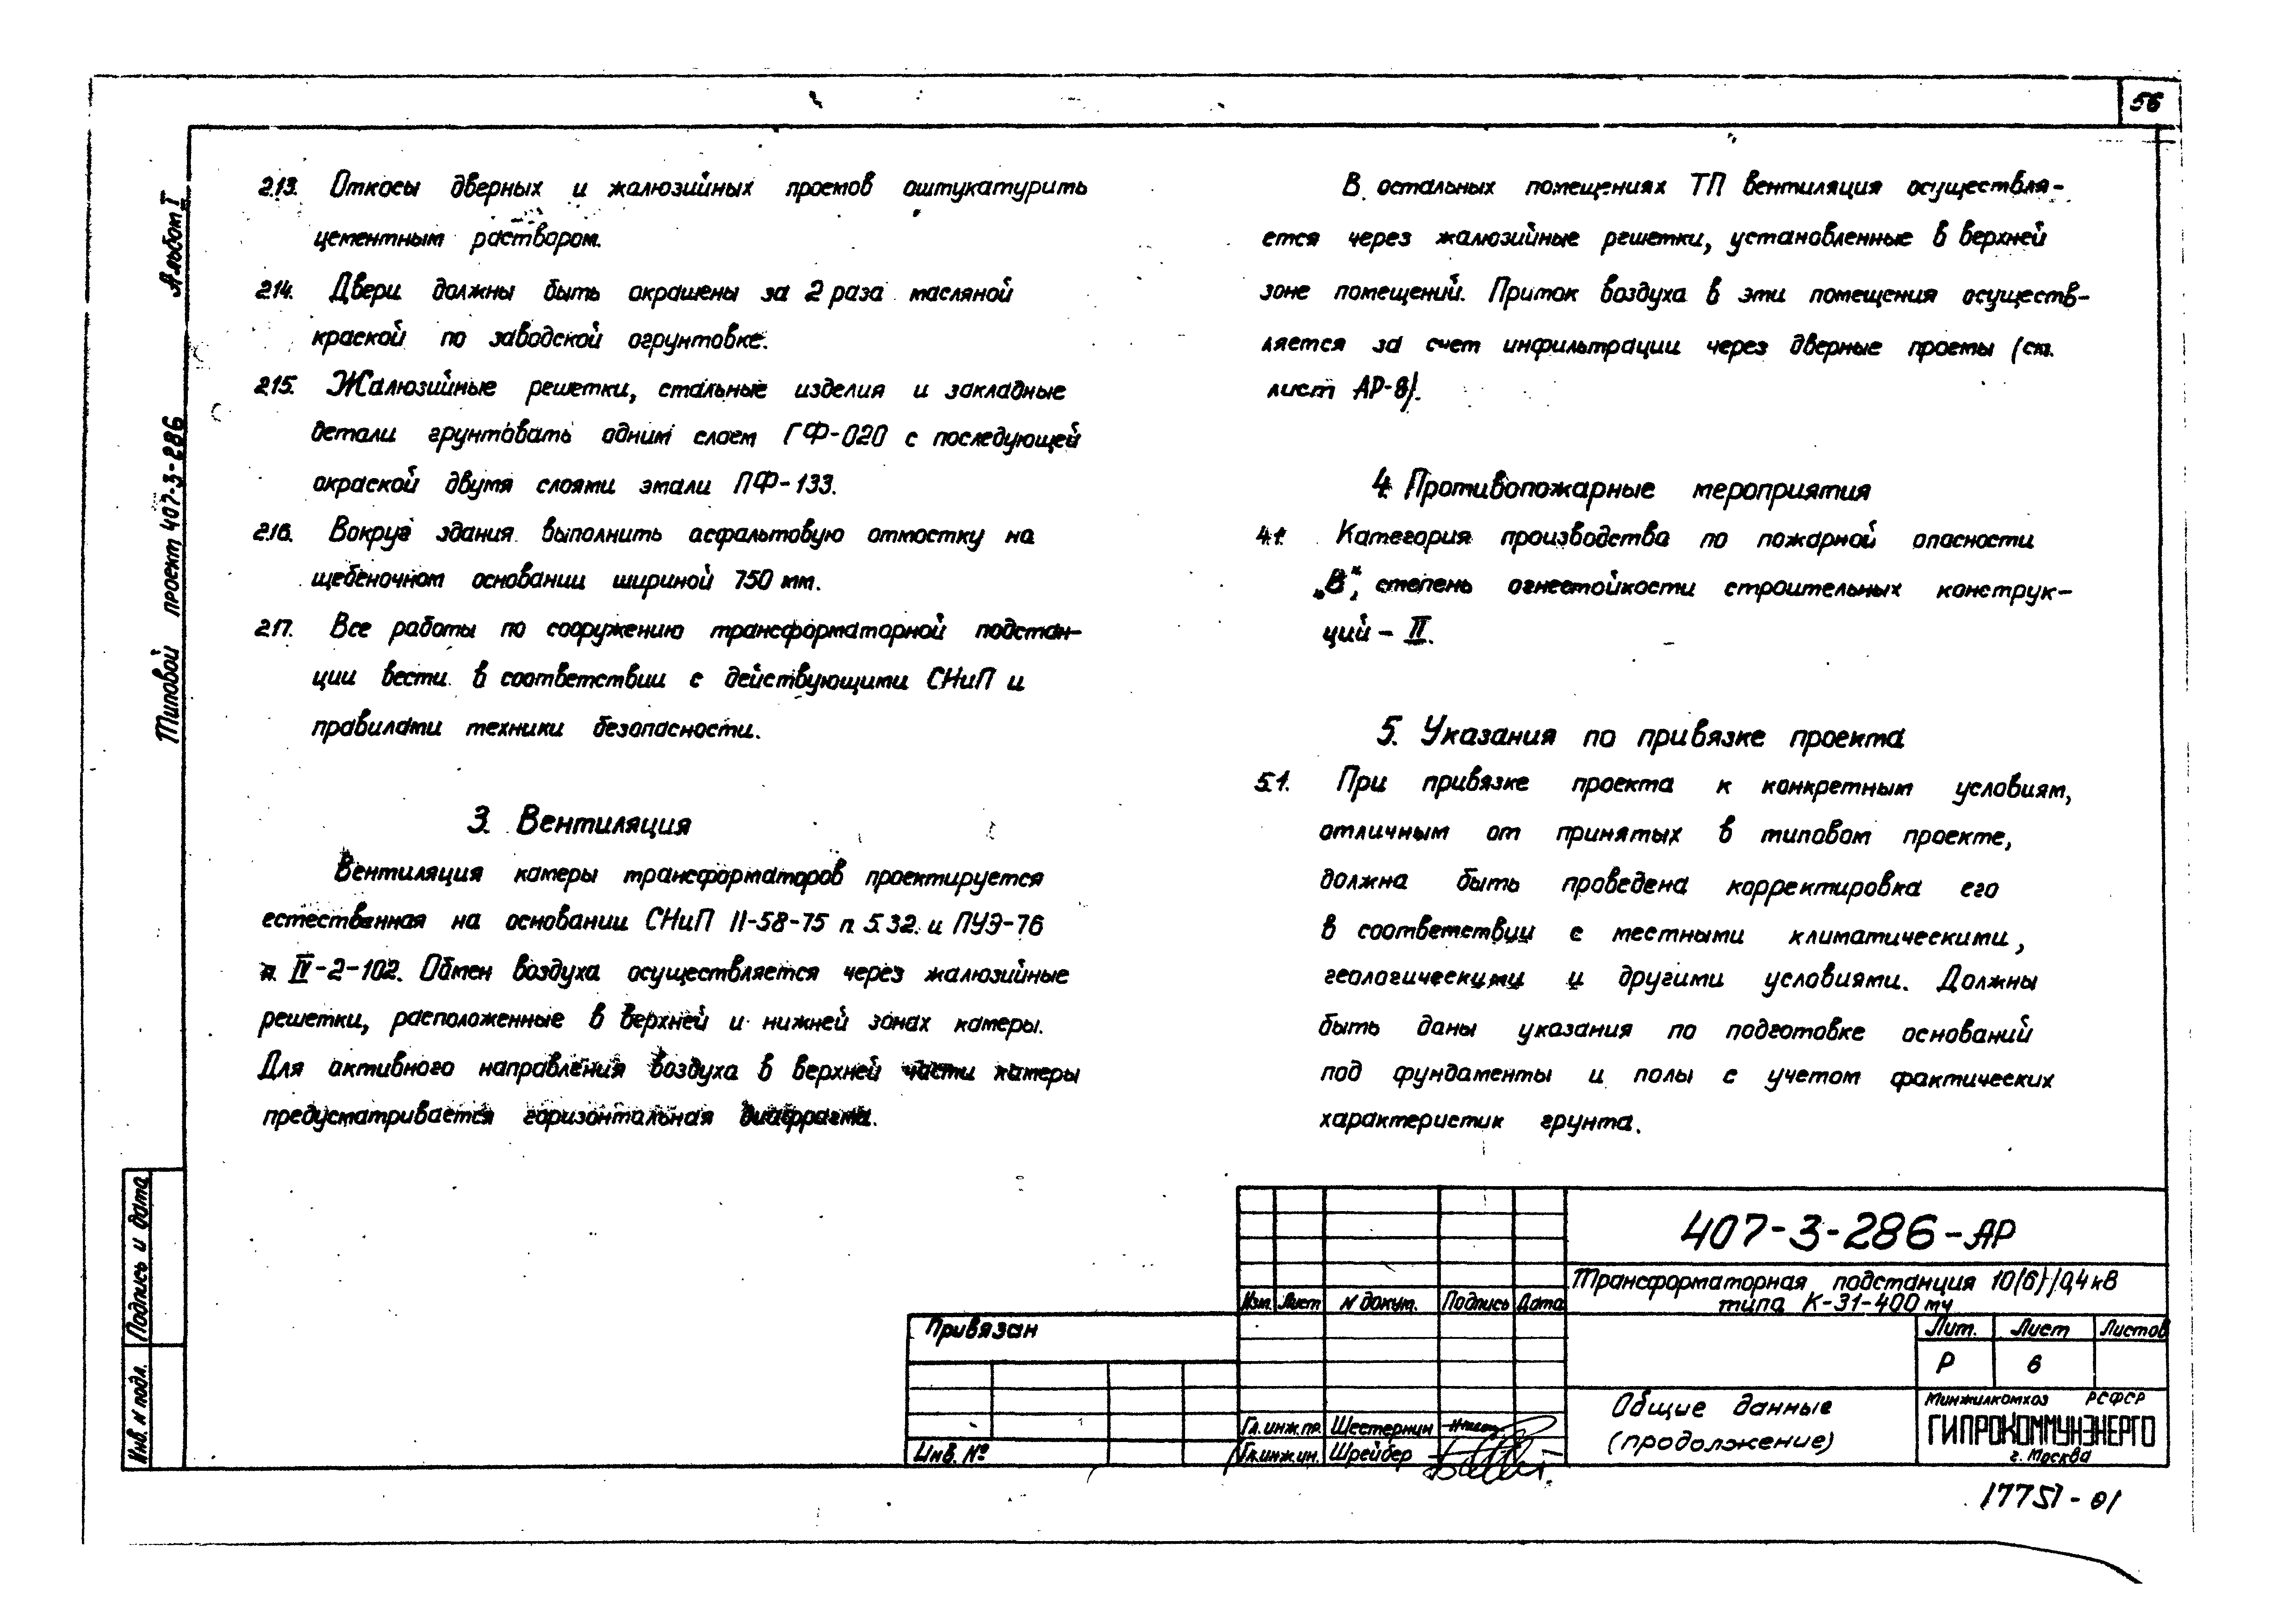 56
Альбом I
Типовой проект 407-3-286
2.13. Откосы дверных и жалюзийных проемов оштукатурить
цементным раствором.
2.14. Двери должны быть окрашены за 2 раза масляной
краской по заводской огрунтовке.
2.15. Жалюзийные решетки, стальные изделия и закладные
детали грунтовать одним слоем ГФ-020 с последующей
окраской двумя слоями эмали ПФ-133.
2.16. Вокруг здания выполнить асфальтовую отмостку на
щебеночном основании шириной 750 мм.
2.17. Все работы по сооружению трансформаторной подстан-
ции вести в соответствии с действующими СНиП и
правилами техники безопасности.
3. Вентиляция
Вентиляция камеры трансформаторов проектируется
естественная на основании СНиП II-58-75 п. 5.32. и ПУЭ-76
п. IV-2-102. Обмен воздуха осуществляется через жалюзийные
решетки, расположенные в верхней и нижней зонах камеры.
Для активного направления воздуха в верхней части камеры
предусматривается горизонтальная диафрагма.
В остальных помещениях ТП вентиляция осуществля-
ется через жалюзийные решетки, установленные в верхней
зоне помещений. Приток воздуха в эти помещения осуществ-
ляется за счет инфильтрации через дверные проемы (см.
лист АР-8).
4. Противопожарные мероприятия
4.1. Категория производства по пожарной опасности
„В", степень огнестойкости строительных конструк-
ций - II.
5. Указания по привязке проекта
5.1. При привязке проекта к конкретным условиям,
отличным от принятых в типовом проекте,
должна быть проведена корректировка его
в соответствии с местными климатическими,
геологическими и другими условиями. Должны
быть даны указания по подготовке оснований
под фундаменты и полы с учетом фактических
характеристик грунта.
Подпись и дата
Инв. N подл.
Привязан
Инв. №
Изм. Лист N докум. Подпись Дата
Гл. инж. пр. Шестернин
Гл. инж. ин. Шрейбер
407-3-286-АР
Трансформаторная подстанция 10(6)/0,4 кВ
типа К-31-400 му
Лит. Лист Листов
Р 6
Общие данные
(продолжение)
Минжилкомхоз РСФСР
ГИПРОКОММУНЭНЕРГО
г. Москва
17751-01